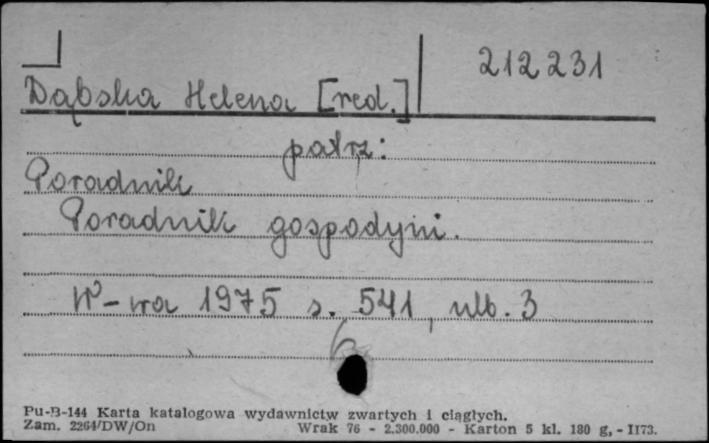 212231
Dąbska Helena [red.]
patrz:
Poradnik
Poradnik gospodyni.
W-wa 1975 s. 541, nlb. 3
6
Pu-B-144 Karta katalogowa wydawnictw zwartych i ciągłych.
Zam. 2264/DW/On Wrak 76 - 2.300.000 - Karton 5 kl. 180 g, - II73.